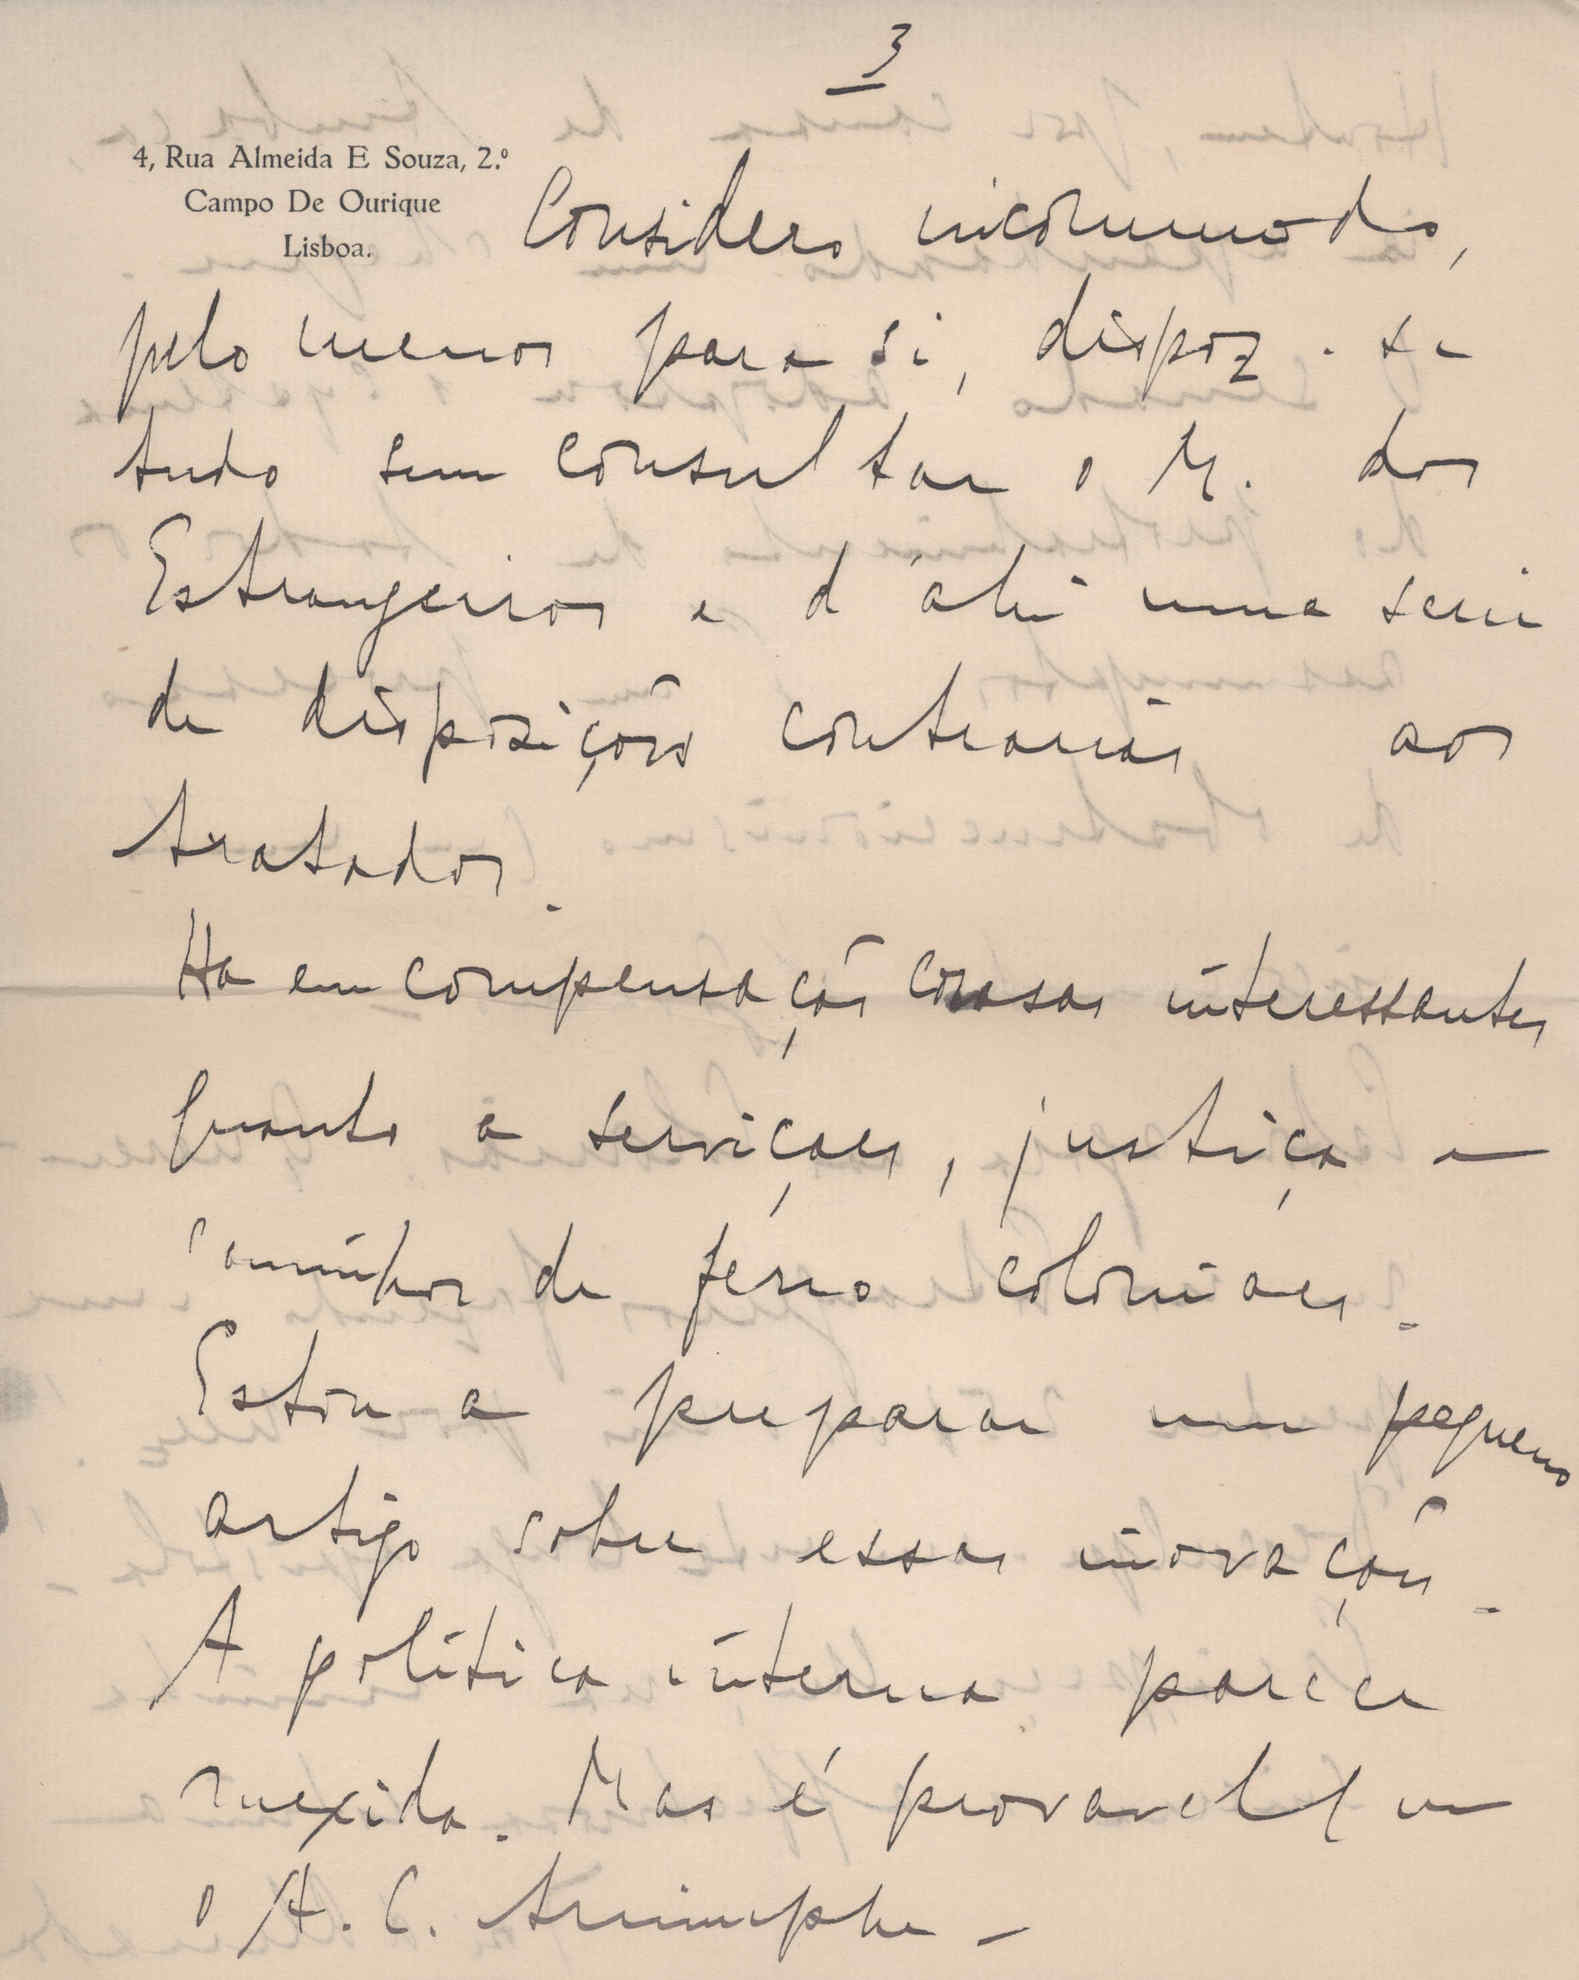 3
4, Rua Almeida E Souza, 2.º
Campo De Ourique
Lisboa.
Considero incommodo,
pelo menos para si, dispoz-se
tudo sem consultar o M. dos
Estrangeiros e d'ahi uma serie
de disposições contrarias aos
tratados.
Ha em compensação coisas interessantes
quanto a serviçaes, justiça e
caminhos de ferro coloniaes.
Estou a preparar um pequeno
artigo sobre essas inovações.
A politica interna parece
mexida. Mas é provavel que
o A. C. triumphe -